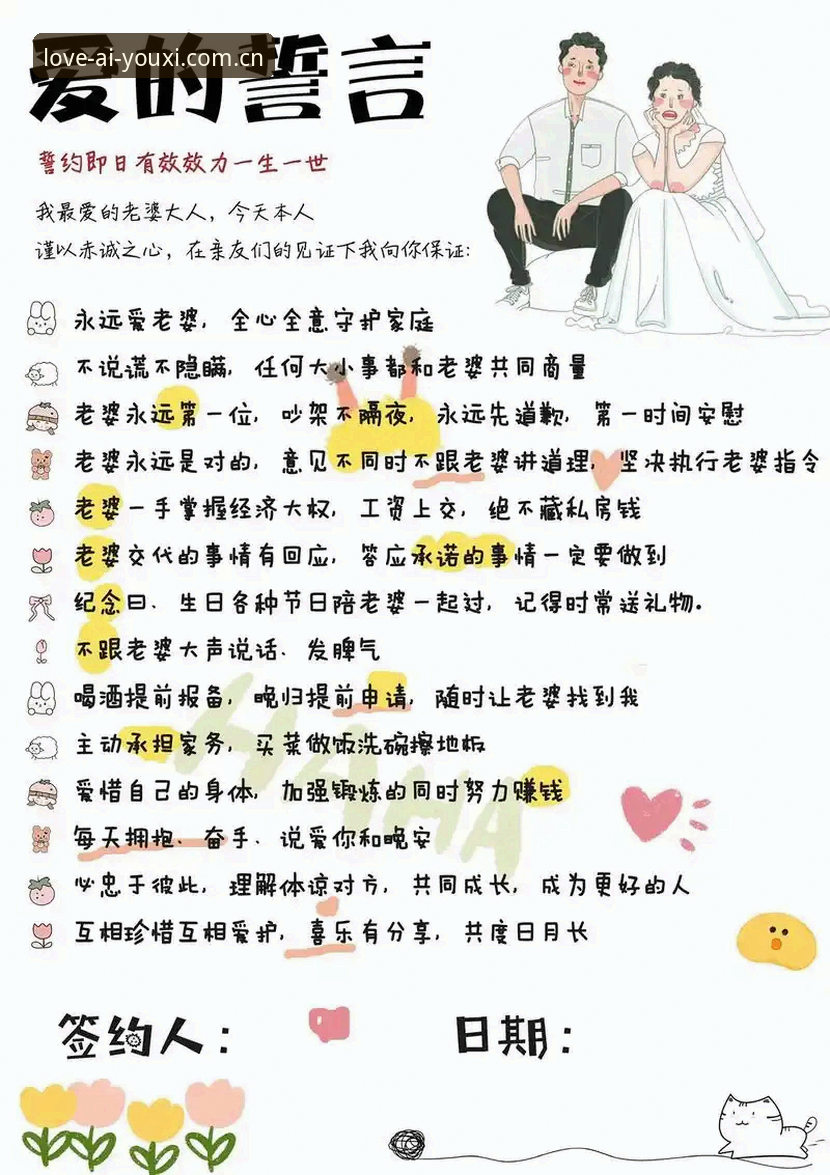 love-ai-youxi.com.cn
爱的誓言
誓约即日有效效力一生一世
我最爱的老婆大人，今天本人
谨以赤诚之心，在亲友们的见证下我向你保证：
永远爱老婆，全心全意守护家庭
不说谎不隐瞒，任何大小事都和老婆共同商量
老婆永远第一位，吵架不隔夜，永远先道歉，第一时间安慰
老婆永远是对的，意见不同时不跟老婆讲道理，坚决执行老婆指令
老婆一手掌握经济大权，工资上交，绝不藏私房钱
老婆交代的事情有回应，答应承诺的事情一定要做到
纪念日、生日各种节日陪老婆一起过，记得时常送礼物。
不跟老婆大声说话、发脾气
喝酒提前报备，晚归提前申请，随时让老婆找到我
主动承担家务，买菜做饭洗碗擦地板
爱惜自己的身体，加强锻炼的同时努力赚钱
每天拥抱、奋手、说爱你和晚安
必忠于彼此，理解体谅对方，共同成长，成为更好的人
互相珍惜互相爱护，喜乐有分享，共度日月长
HAHA
签约人：
日期：